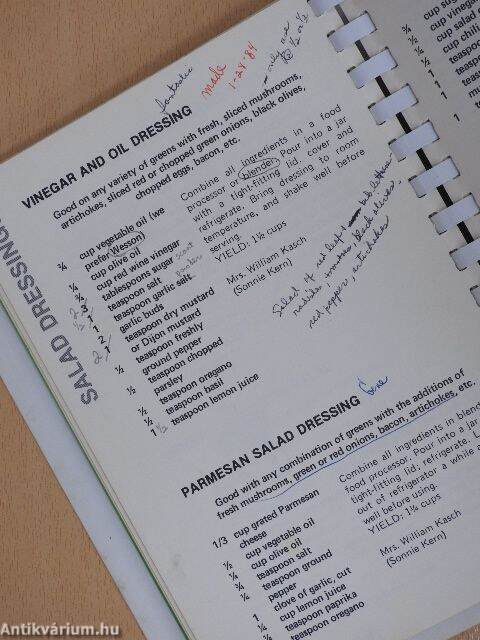 fantastic
made
1-24-84
only use
SALAD DRESSING
VINEGAR AND OIL DRESSING
Good on any variety of greens with fresh, sliced mushrooms,
artichokes, sliced red or chopped green onions, black olives,
chopped eggs, bacon, etc.
¾ cup vegetable oil (we
prefer Wesson)
cup olive oil
cup red wine vinegar
tablespoons sugar
teaspoon salt
teaspoon garlic salt
garlic buds
teaspoon dry mustard
or Dijon mustard
teaspoon freshly
ground pepper
teaspoon chopped
parsley
½ teaspoon oregano
½ teaspoon basil
1 teaspoon lemon juice
Combine all ingredients in a food
processor or blender. Pour into a jar
with a tight-fitting lid, cover and
refrigerate. Bring dressing to room
temperature, and shake well before
serving.
YIELD: 1½ cups
Mrs. William Kasch
(Sonnie Kern)
Salad of red leaf & bib lettuce
radishes, tomatoes, black olives
red peppers, artichokes
PARMESAN SALAD DRESSING
Good with any combination of greens with the additions of
fresh mushrooms, green or red onions, bacon, artichokes, etc.
1/3 cup grated Parmesan
cheese
½ cup vegetable oil
¼ cup olive oil
¾ teaspoon salt
¼ teaspoon ground
pepper
1 clove of garlic, cut
¼ cup lemon juice
teaspoon paprika
teaspoon oregano
Combine all ingredients in blen
food processor. Pour into a jar
tight-fitting lid; refrigerate.
out of refrigerator a while a
well before using.
YIELD: 1¼ cups
Mrs. William Kasch
(Sonnie Kern)
cup sug
cup vinega
cup salad
cup chil
teaspo
teaspo
Antikvárium.hu